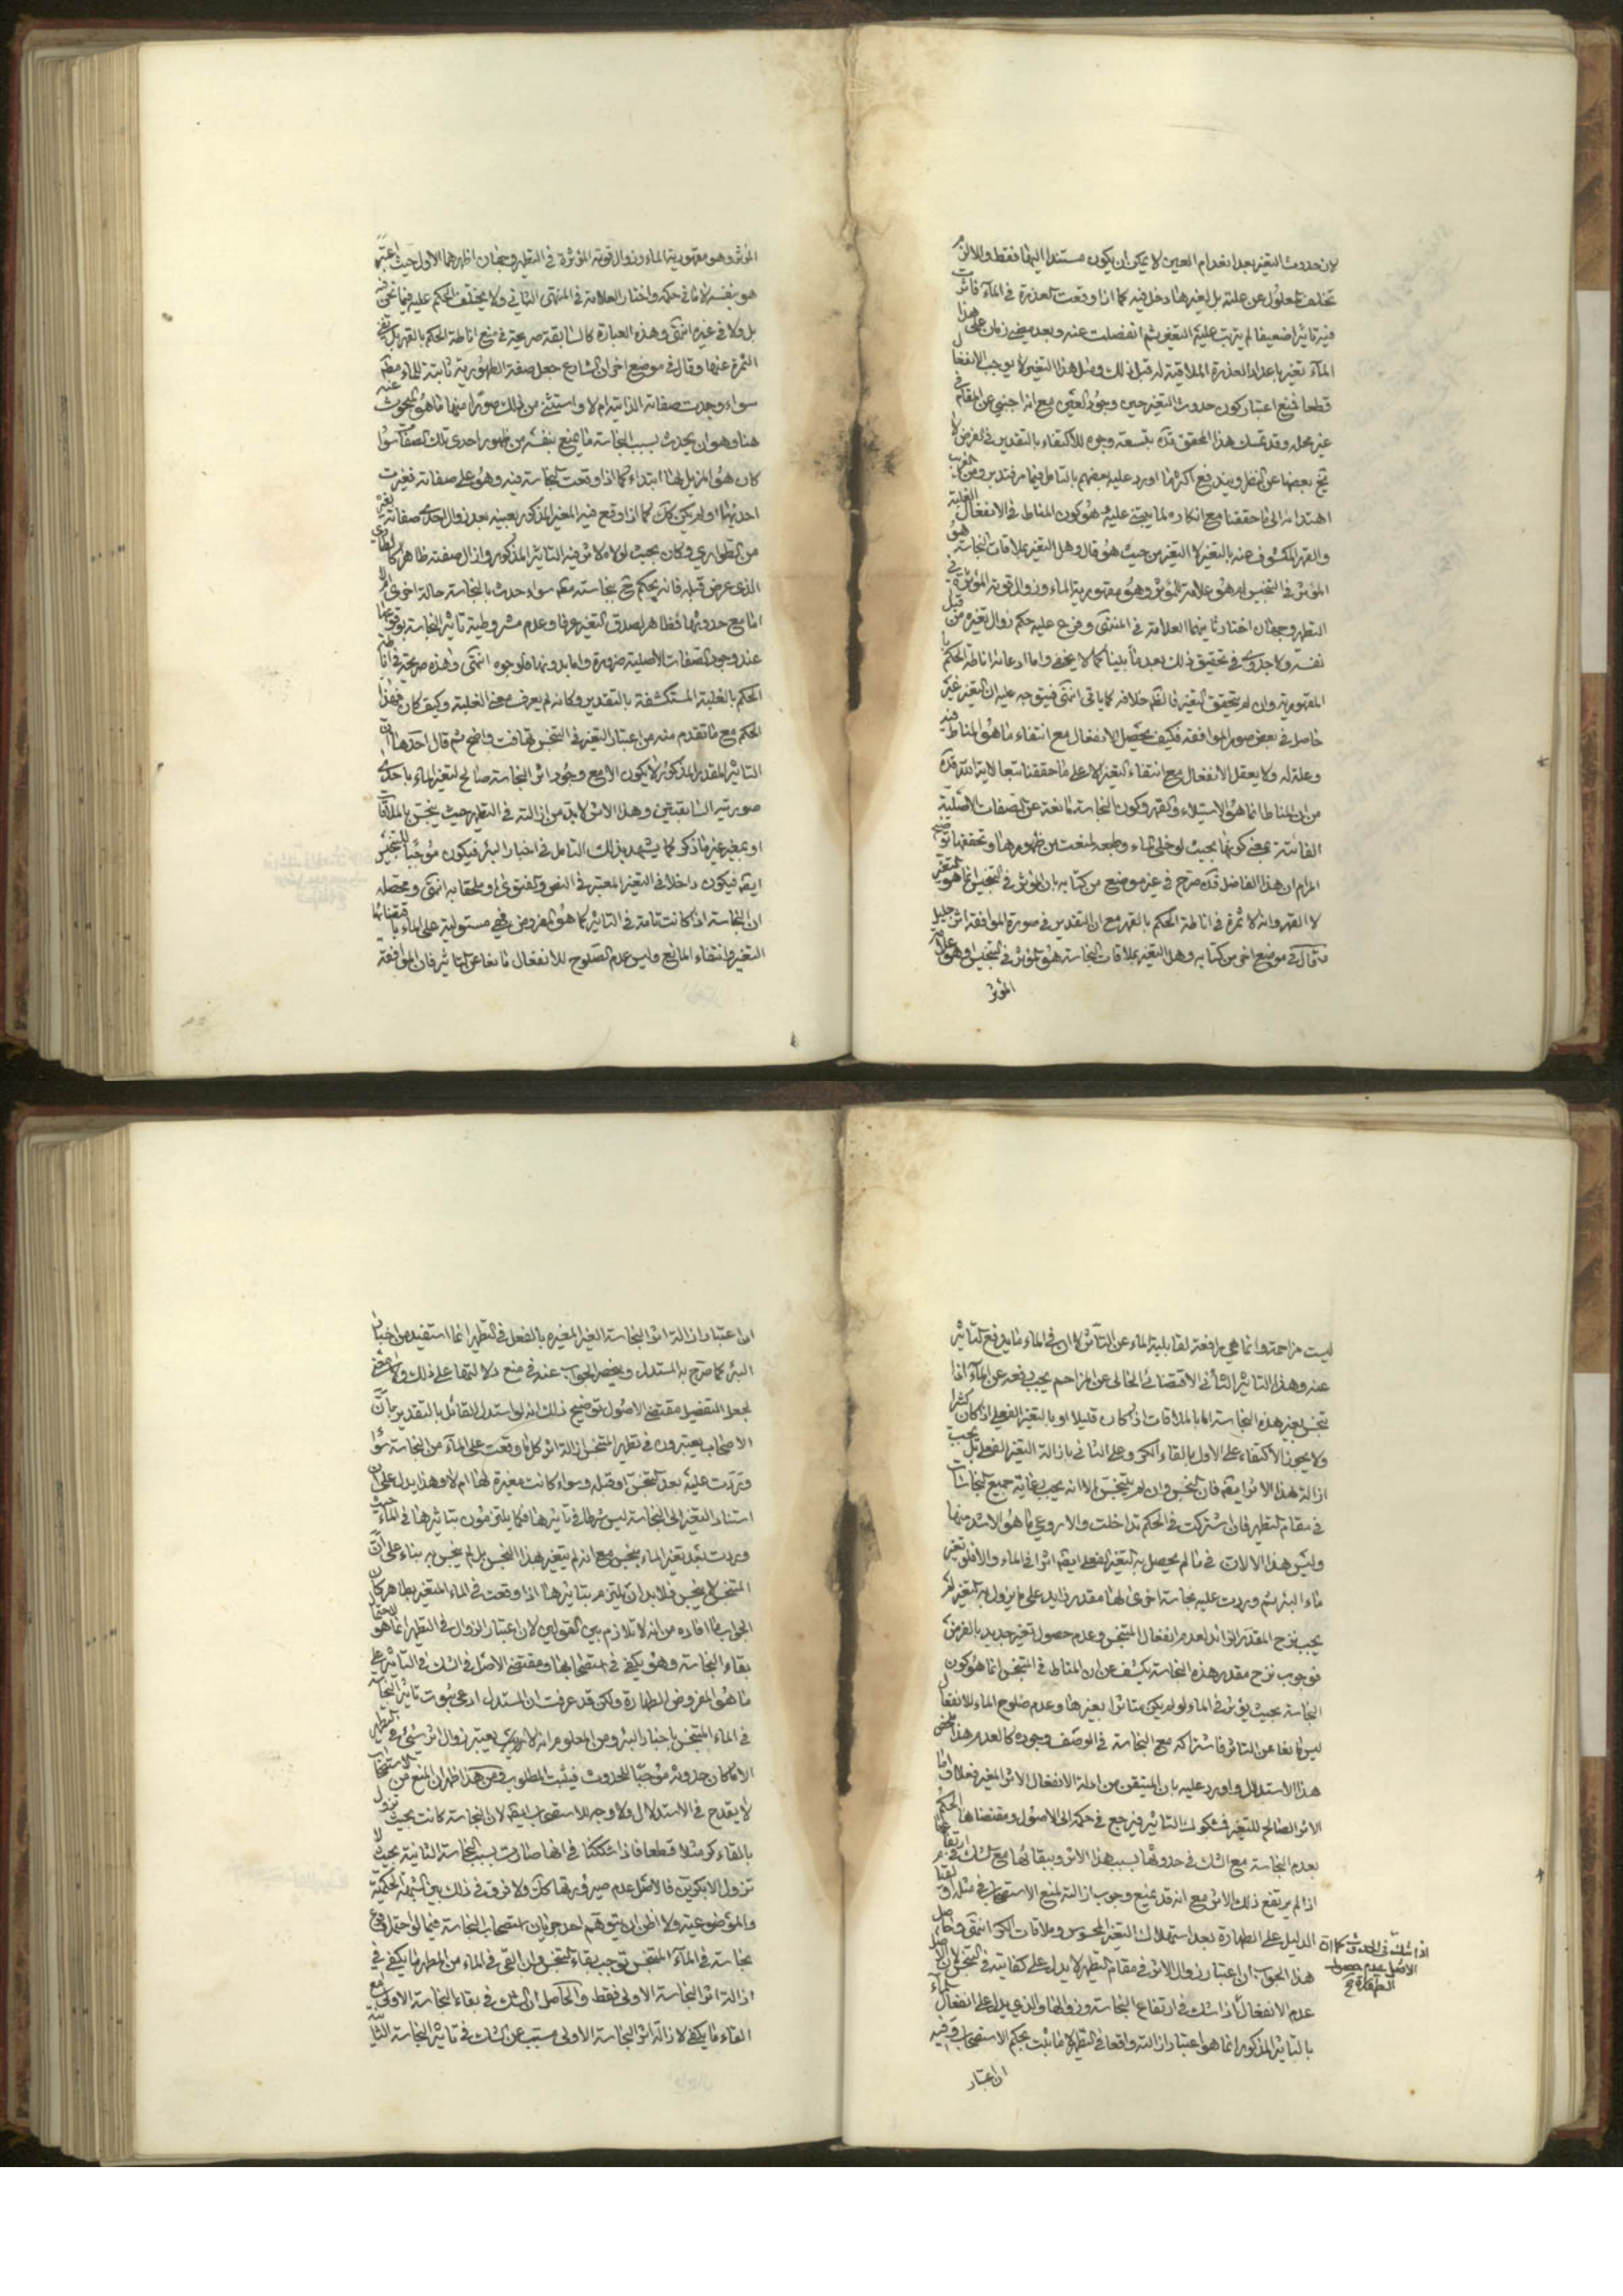 لان حدوث التغير بعد انعدام العين لا يمكن ان يكون مستندا اليها فقط والا لزم
تخلف المعلول عن علته بل لغيرها دخل فيه كما اذا وقعت العذرة في الماء فاثرت
فيه تاثيرا ضعيفا لم يترتب عليه التغير ثم انفصلت عنه وبعد مضي زمان على هذا
الماء تغير باعداد العذرة الملاقية له قبل ذلك ومثل هذا التغير لا يوجب الانفعال
قطعا فمنع اعتبار كون حدوث التغير حين وجود العين مع انه اجنبي عن المقام في
غير محله وقد تمسك هذا المحقق قده بتسعة وجوه للاكتفاء بالتقدير في الفرض لا
يخ بعضها عن النظر ويندفع اكثرها اورد عليه بعضهم بالتامل فيما مر فتدبر ومن الغريب
اهتدائه الى ما حققنا مع انكاره لما يبتنى عليه وهو كون المناط في الانفعال الغلبة
والقهر المكشوف عنه بالتغير لا التغير من حيث هو قال وهل التغير بملاقات النجاسة هو
المؤثر في التنجيس ام هو علامة المؤثر وهو مقهورية الماء وزوال قوته المؤثرة في
التطهر وجهان اختار ثانيهما العلامة في المنتهى وفرع عليه حكم زوال تغيره من قبل
نفسه ولا جدوى في تحقيق ذلك بعد ما بينا كما لا يخفى واما ادعائه اناطة الحكم با
المقهورية وان لم يتحقق التغير فالظم خلافه كما ياتى انتهى فيتوجه عليه ان التغير غير
حاصل في بعض صور الموافقة فكيف يحصل الانفعال مع انتفاء ما هو المناط فيه
وعلة له ولا يعقل الانفعال مع انتفاء التغير الا على ما حققنا تبعا لاية الله قده
من ان المناط انما هو الاستيلاء والقهر وكون النجاسة مانعة عن الصفات الاصلية
الفائتة بمعنى كونها بحيث لو خلى الماء وطبعه لمنعت من ظهورها وتحققها توضيح
المرام ان هذا الفاضل قده صرح في غير موضع من كتابه بان المؤثر في التنجيس انما هو التغير
لا القهر وانه لا ثمرة في اناطة الحكم بالقهر مع ان التقدير في صورة الموافقة اثر جليل
وقال في موضع اخر من كتابه وهل التغير بملاقات النجاسة هو المؤثر في التنجيس او هو علامة
المؤثر
المؤثر وهو مقهورية الماء وزوال قوته المؤثرة في التطهر وجهان اظهرهما الاول حيث اعتبر
هو بنفسه لا ما في حكمه واختار العلامة في المنتهى الثاني ولا يختلف الحكم عليه فيما نحن فيه
بل ولا في غيره انتهى وهذه العبارة كالسابقة صريحة في منع اناطة الحكم بالقهر بل نفي
الثمرة عنها وقال في موضع اخر ان الشارع جعل صفة الطهورية ثابتة للماء مطم
سواء وجدت صفاته الذاتية ام لا واستثنى من ذلك صورا منها ما هو المبحوث عنه
هنا وهو ان يحدث بسبب النجاسة ما يمنع بنفسه من ظهور احدى تلك الصفات سواء
كان هو المزيل لها ابتداء كما اذا وقعت النجاسة فيه وهو على صفاته فغيرت
احديها او لم يكن كك كما اذا وقع فيه المغير المذكور بعينه بعد زوال احدى صفاته بغيره
من الطواري وكان بحيث لولاه لاثر فيه التاثير المذكور وازال صفته ظاهرا كالطاري
الذي عرض قبله فانه يحكم ح بنجاسته مطم سواء حدث بالنجاسة حالة اخرى ام لا
اما مع حدوثها فظاهر لصدق التغير عرفا وعدم مشروطية تاثير النجاسة بوقوعها
عند وجود الصفات الاصلية ضرورة واما بدونها فلوجوه انتهى وهذه صريحة في اناطة
الحكم بالغلبة المستكشفة بالتقدير وكانه لم يعرف معنى الغلبة وكيف كان فهذا
الحكم مع ما تقدم منه من اعتبار التغير في التنجس تهافت واضح ثم قال احدها ان
التاثير المقدر المذكور لا يكون الا مع وجود اثر النجاسة صالح لتغير الماء باحدى
صورتيه السابقتين وهذا الاثر لابد من ازالته في التطهير حيث ينجس بالملاقات
او بمغير غير ما ذكر كما يشهد بذلك التامل في اخبار البئر فيكون موجبا للتنجس
ايضا فيكون داخلا في التغير المعتبر في النص والفتوى او ملحقا به انتهى ومحصله
ان النجاسة اذا كانت تامة في التاثير كما هو المفروض فهي مستولية على الماء باقتضائها
التغير وانتفاء المانع وليس عدم الصلوح للانفعال مانعا عن التاثير فان الموافقة
ليست مزاحمة وانما هي رافعة لقابلية الماء عن التاثر لا ان في الماء ما يدفع التاثير
عنه وهذا التاثير الشأني الاقتضائي الخالي عن المزاحم يجب دفعه عن الماء اذا
تنجس بغير هذه النجاسة اما بالملاقات اذا كان قليلا او بالتغير الفعلي اذا كان كثيرا
ولا يجوز الاكتفاء على الاول بالقاء الكر وعلى الثاني بازالة التغير الفعلي بل يجب
ازالة هذا الاثر ايضا فان النجس وان لم يتنجس الا انه يجب رعاية جميع النجاسات
في مقام التطهير فان اشتركت في الحكم تداخلت والا روعي ما هو الاشد منها
وليس هذا الا لان في ما لم يحصل به التغير الفعلي ايضا اثرا في الماء والا فلو تغير
ماء البئر ثم وردت عليه نجاسة اخرى لها مقدر زايد على ما يزول به التغير لم
يجب نزح المقدر الزائد لعدم انفعال المتنجس وعدم حصول تغير جديد بالفرض
فوجوب نزح مقدر هذه النجاسة يكشف عن ان المناط في التنجس انما هو كون
النجاسة بحيث يؤثر في الماء لو لم يكن متاثرا بغيرها وعدم صلوح الماء للانفعال
ليس مانعا عن التاثر فاشتراكه مع النجاسة في الوصف وجوده كالعدم هذا ملخص
هذا الاستدلال واورد عليه بان المتيقن من ادلة الانفعال الاثر المغير فعلا واما
الاثر الصالح للتغير فمشكوك التاثير فيرجع في حكمه الى الاصول ومقتضاها الحكم
بعدم النجاسة مع الشك في حدوثها بسبب هذا الاثر وببقائها مع الشك في ارتفاعها
اذا لم يرتفع ذلك الاثر مع انه قد يمنع وجوب ازالته لمنع الاستصحاب في مثله وبقاء
الدليل على الطهارة بعد استهلاك التغير المحسوس وملاقات الكر انتهى وحاصل
هذا الجواب ان اعتبار زوال الاثر في مقام التطهير لا يدل على كفايته في التنجس لان الاصل
عدم الانفعال اذا شك في ارتفاع النجاسة وزوالها والذي يدل على انفعال الماء
بالتاثير المذكور انما هو اعتبار ازالته واقعا في التطهير لا ما ثبت بحكم الاستصحاب وفيه
ان اعتبار
اذا شك في الحدوث كما ان
الاصل عدم حصول
الطهارة ح
ان اعتبار ازالة اثر النجاسة الغير المغيرة بالفعل في التطهير انما استفيد من اخبار
البئر كما صرح به المستدل وينحصر الجواب عنه في منع دلالتها على ذلك ولا معنى
لجعل التفصيل مقتضى الاصول توضيح ذلك انه لو استدل القائل بالتقدير بان
الاصحاب يعتبرون في تطهير المتنجس ازالة اثر كل ما وقعت على الماء من النجاسة سواء
وردت عليه بعد التنجس او قبله وسواء كانت مغيرة لها ام لا وهذا يدل على ان
استناد التغير الى النجاسة ليس شرطا في تاثيرها فكما يلتزمون بتاثيرها في الماء حيث
وردت بعد تغير الماء بنجس مع انه لم يتغير بهذا النجس بل لم ينجس به بناء على ان
المتنجس لا ينجس فلابد ان يلتزم بتاثيرها اذا وقعت في الماء المتغير بطاهر كان
الجواب ما افاده من انه لا تلازم بين القولين لان اعتبار الزوال في التطهير انما هو لاحتمال
بقاء النجاسة وهو يكفي في استصحابها ومقتضى الاصل في الشك في التاثير على
ما هو المفروض الطهارة ولكن قد عرفت ان المستدل ادعى ثبوت تاثير النجاسة
في الماء المتنجس باخبار البئر ومن المعلوم انه لا يعتبر زوال اثر شيء في التطهير
الا ما كان حدوثه موجبا للحدوث فيثبت المطلوب ومن هذا ظهر ان المنع من الاستصحاب
لا يقدح في الاستدلال ولا وجه للاستصحاب ايضا لان النجاسة كانت بحيث تزول
بالقاء كر مثلا قطعا فاذا شككنا في انها صارت بسبب النجاسة الثانية بحيث لا
تزول الا بكرين فالاصل عدم صيرورتها كك ولا فرق في ذلك بين الشبهة الحكمية
والموضوعية ولا اظن ان يتوهم احد جريان استصحاب النجاسة فيما لو احتمل وقوع
نجاسة في الماء المتنجس توجب بقاء التنجس وان القى في الماء من المطهر ما يكفي في
ازالة اثر النجاسة الاولى فقط والحاصل ان الشك في بقاء النجاسة الاولى مع
القاء ما يكفي لازالة اثر النجاسة الاولى مسبب عن الشك في تاثير النجاسة الثانية